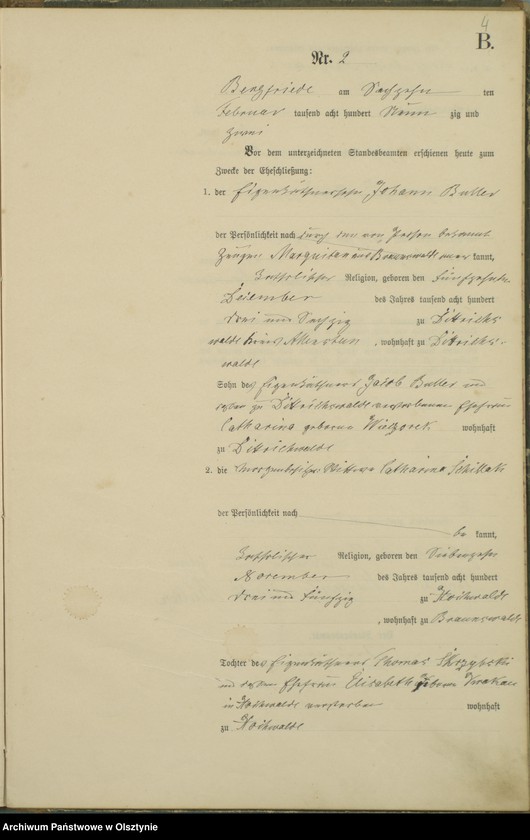 4
B.
Nr. 2
Bergfriede am Sechzehn ten
Februar tausend acht hundert Neun zig und
zwei
Vor dem unterzeichneten Standesbeamten erschienen heute zum
Zwecke der Eheschließung:
1. der Eigenkäthnersohn Johann Buller
der Persönlichkeit nach durch den von Person bekannt
Zeugen aner kannt,
katholischer Religion, geboren den fünfzehnten
Dezember des Jahres tausend acht hundert
drei und Sechzig zu Dittrichs
walde Kreis Allenstein , wohnhaft zu Dittrichs-
walde
Sohn des Eigenkäthners Jacob Buller und
zu Dittrichswalde verstorbenen Ehefrau
Catharina geborene Wieczorek wohnhaft
zu Dittrichswalde
2. die Wittwe Catharina
der Persönlichkeit nach
be kannt,
katholischer Religion, geboren den Siebenzehn
November des Jahres tausend acht hundert
drei und fünfzig zu
, wohnhaft zu Braunswalde
Tochter des Eigenkäthners Thomas
und dessen Ehefrau Elisabeth geborene
in verstorben wohnhaft
zu
Archiwum Państwowe w Olsztynie